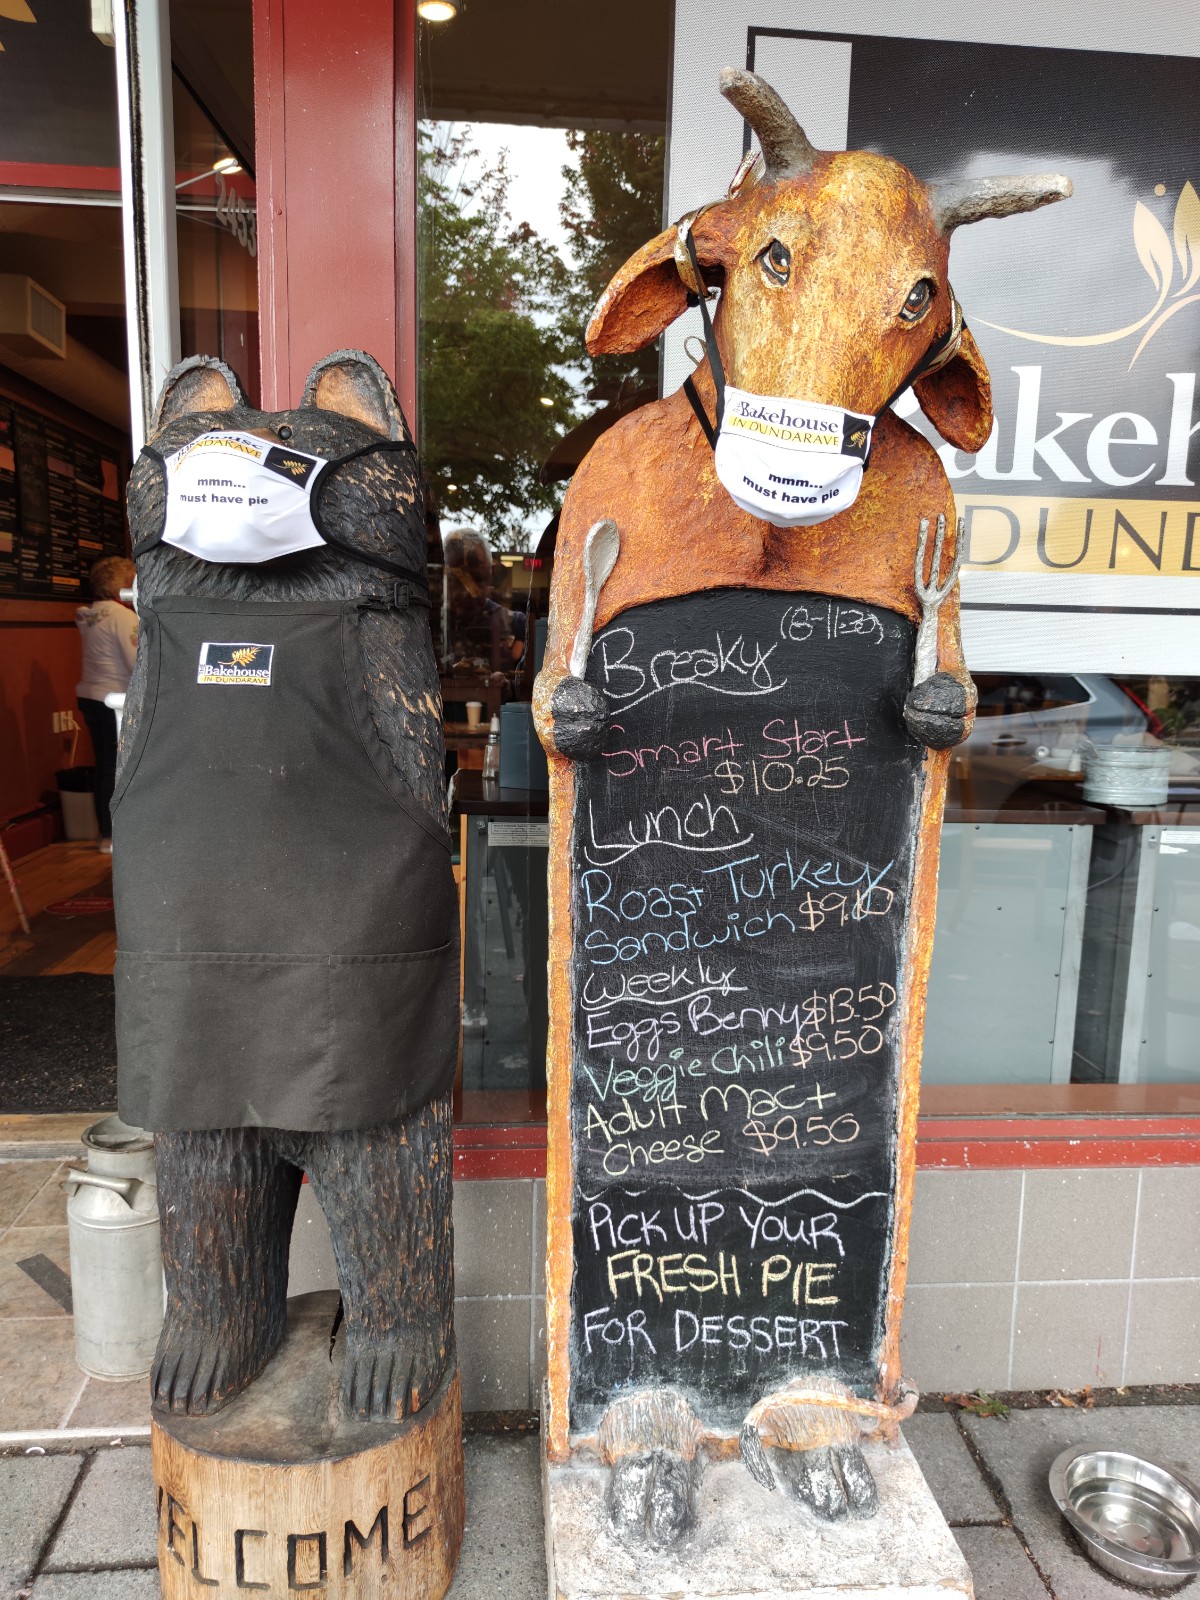 Bakehouse
IN DUNDARAVE
mmm...
must have pie
The Bakehouse
IN DUNDARAVE
WELCOME
The Bakehouse
IN DUNDARAVE
mmm...
must have pie
akeh
DUN
Breaky (8-11:30)
Smart Start
$10.25
Lunch
Roast Turkey
Sandwich $9.10
Weekly
Eggs Benny $13.50
Veggie Chili $9.50
Adult Mac +
Cheese $9.50
PICK UP YOUR
FRESH PIE
FOR DESSERT